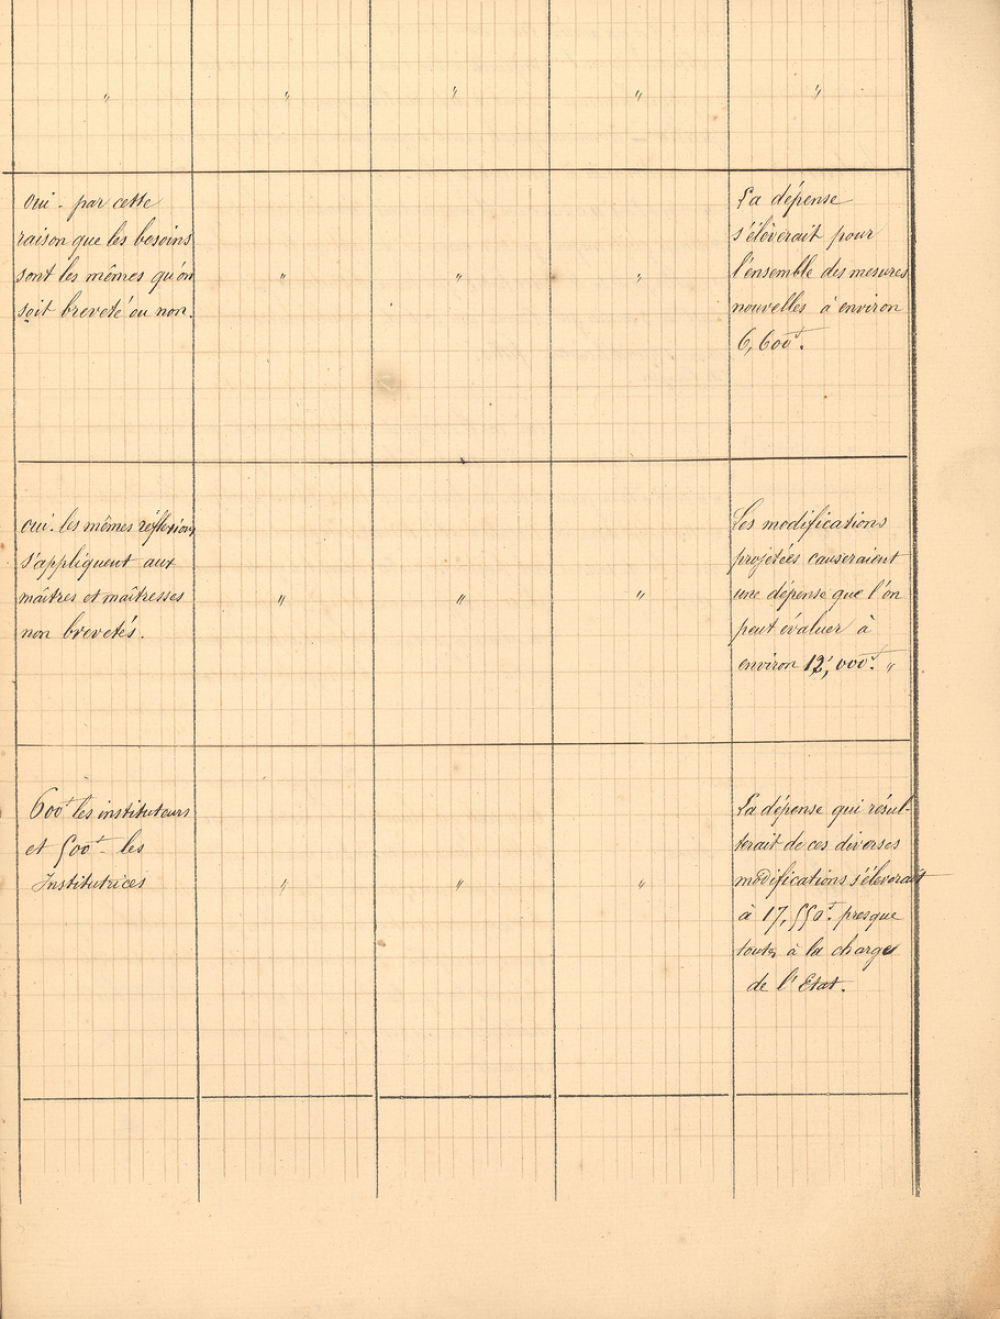 " " " " "
oui - par cette
raison que les besoins
sont les mêmes qu'on
soit breveté ou non.
" " "
La dépense
s'élèverait pour
l'ensemble des mesures
nouvelles à environ
6,600f.
oui. les mêmes réflexions
s'appliquent aux
maîtres et maîtresses
non brevetés.
" " "
Les modifications
projetées causeraient
une dépense que l'on
peut évaluer à
environ 12,000f. "
600f les instituteurs
et 500f - les
Institutrices
" " "
La dépense qui résul-
terait de ces diverses
modifications s'élèverait
à 17,550f. presque
toute à la charge
de l'Etat.